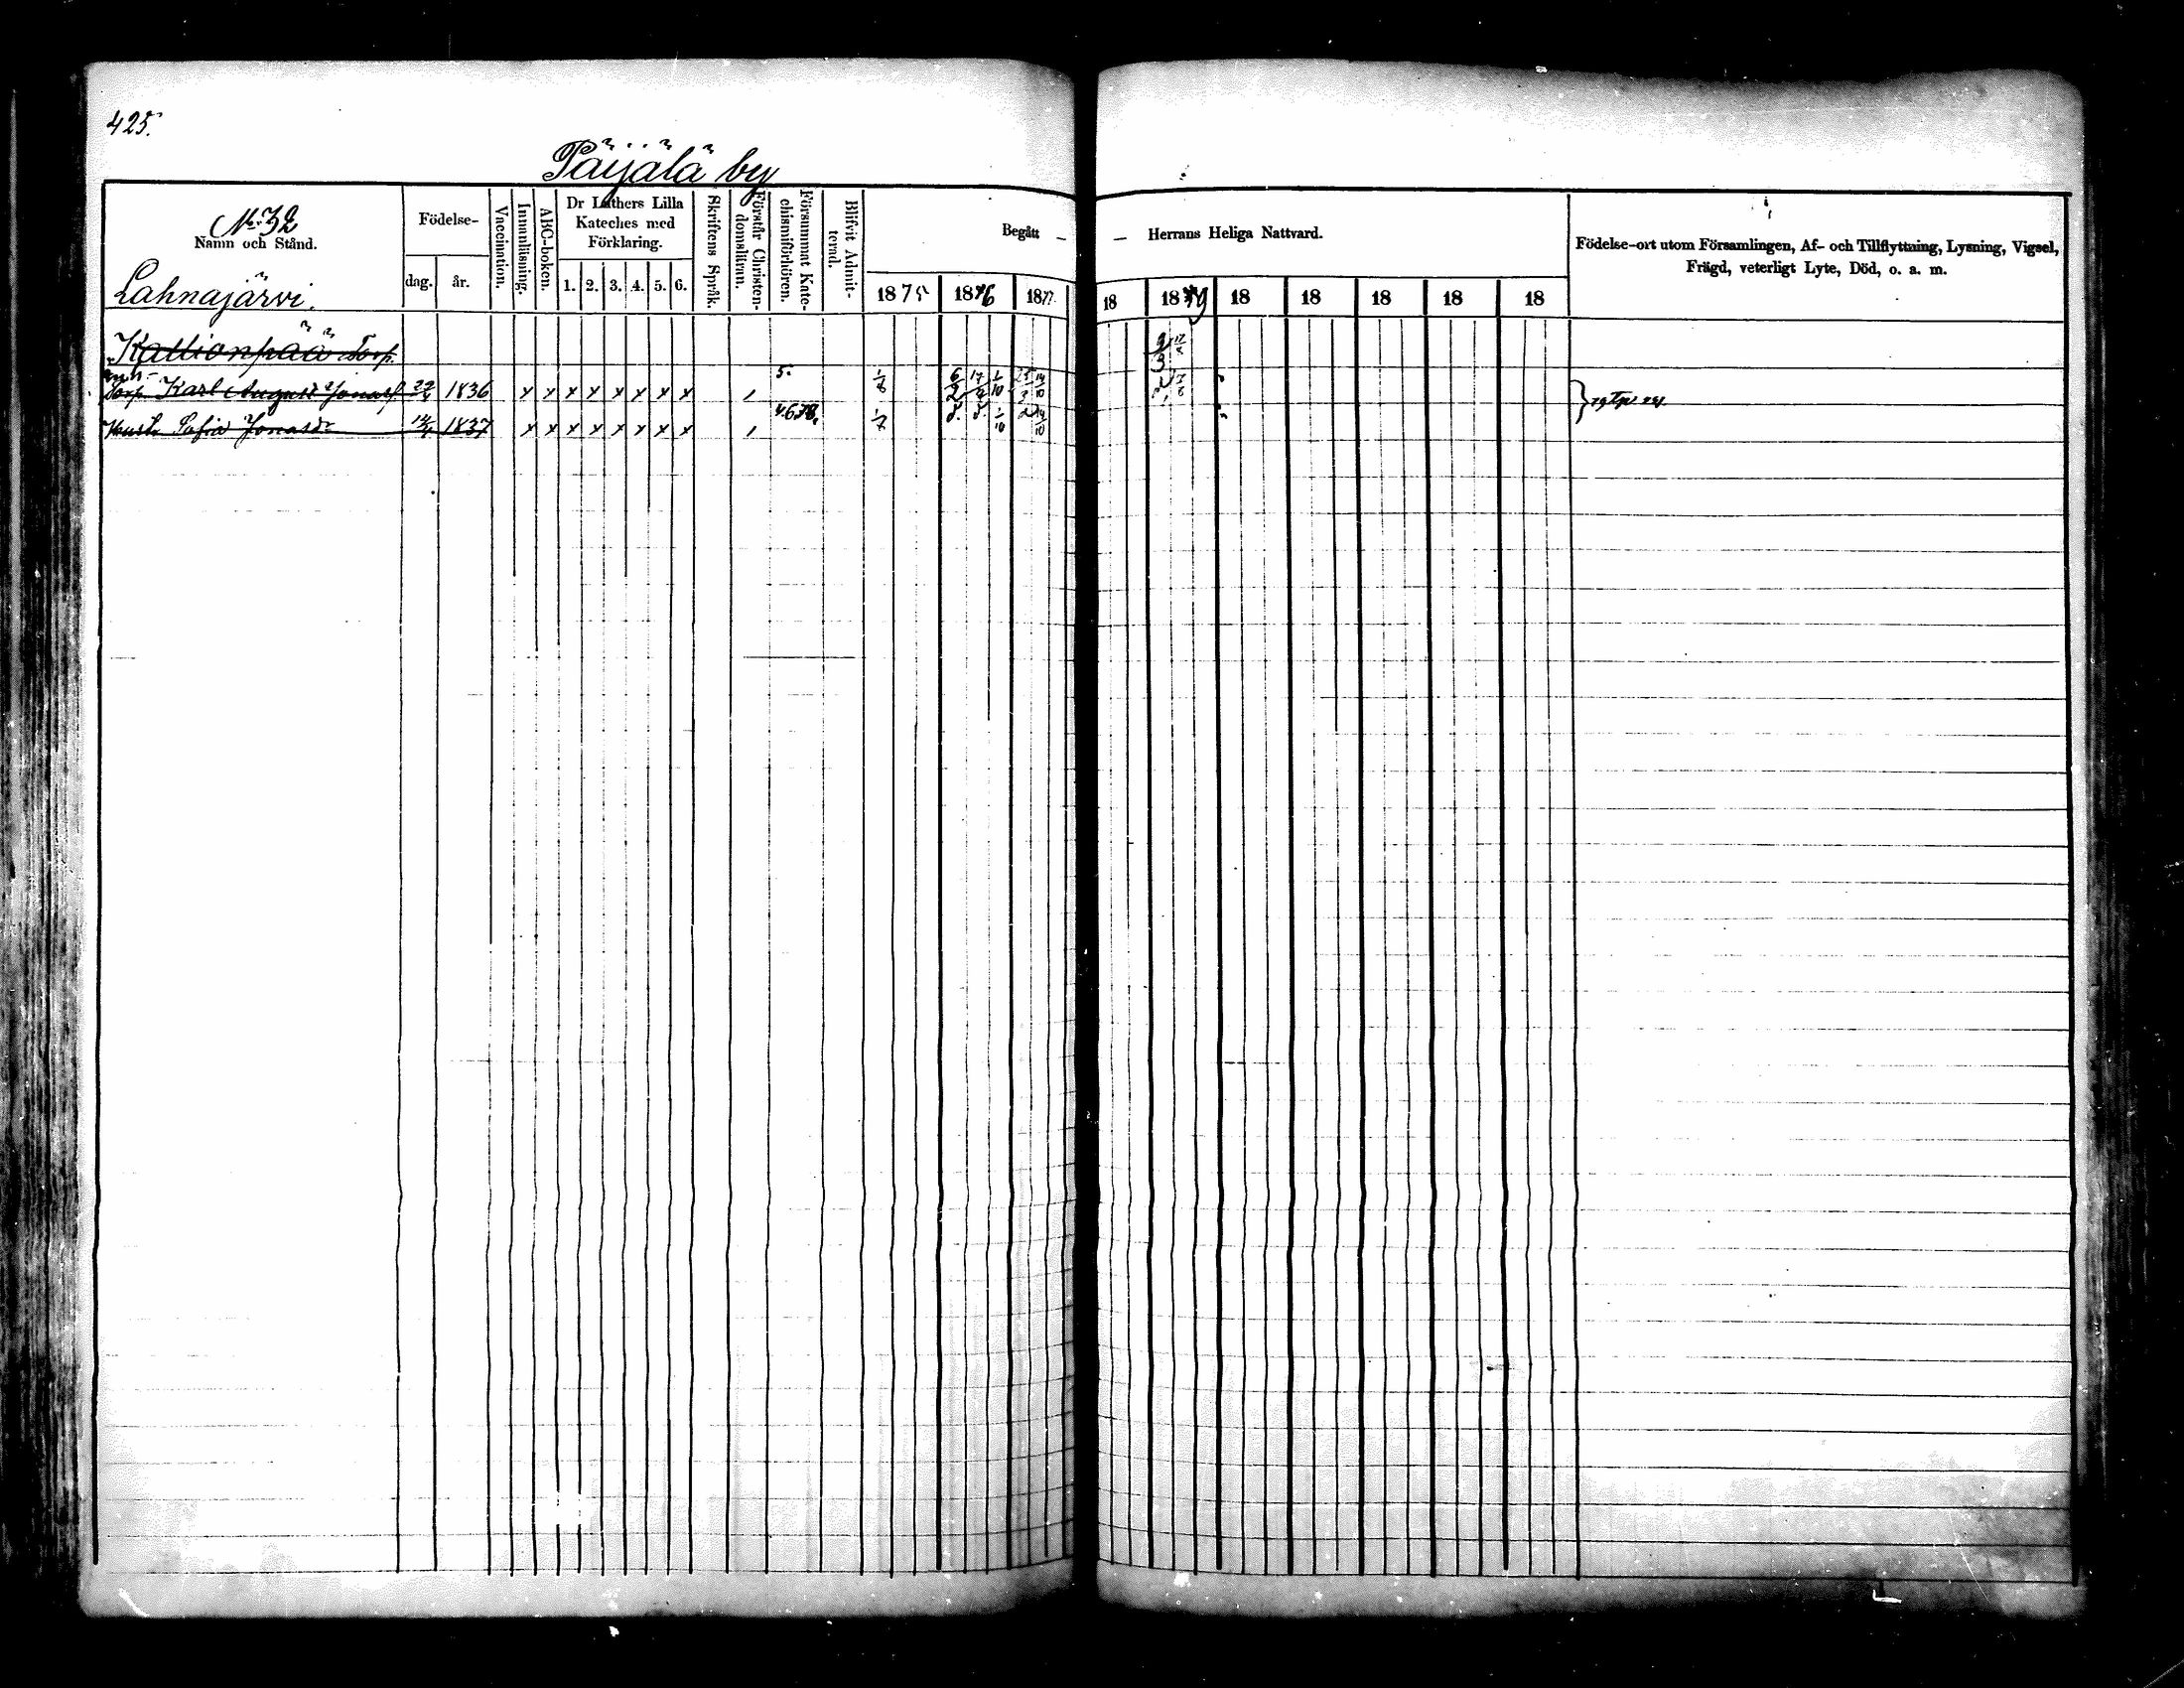 425.
Päijälä by
No 32
Namn och Stånd.
Lahnajärvi.
Födelse-
dag. år.
Vaccination.
Innanläsning.
ABC-boken.
Dr Luthers Lilla
Kateches med
Förklaring.
1. 2. 3. 4. 5. 6.
Skriftens Språk.
Förstår Christen-
domsläran.
Försummat Kate-
chismiförhören.
Blifvit Admit-
terad.
Begått — — Herrans Heliga Nattvard.
1875 1876 1877 18 1879 18 18 18 18 18
Födelse-ort utom Församlingen, Af- och Tillflyttning, Lysning, Vigsel,
Frägd, veterligt Lyte, Död, o. a. m.
Kallionpää Torp.
Torp. Karl August Jonass 1836 x x x x x x x x 5.
Hust. Sofia Jonasd 1837 x x x x x x x x